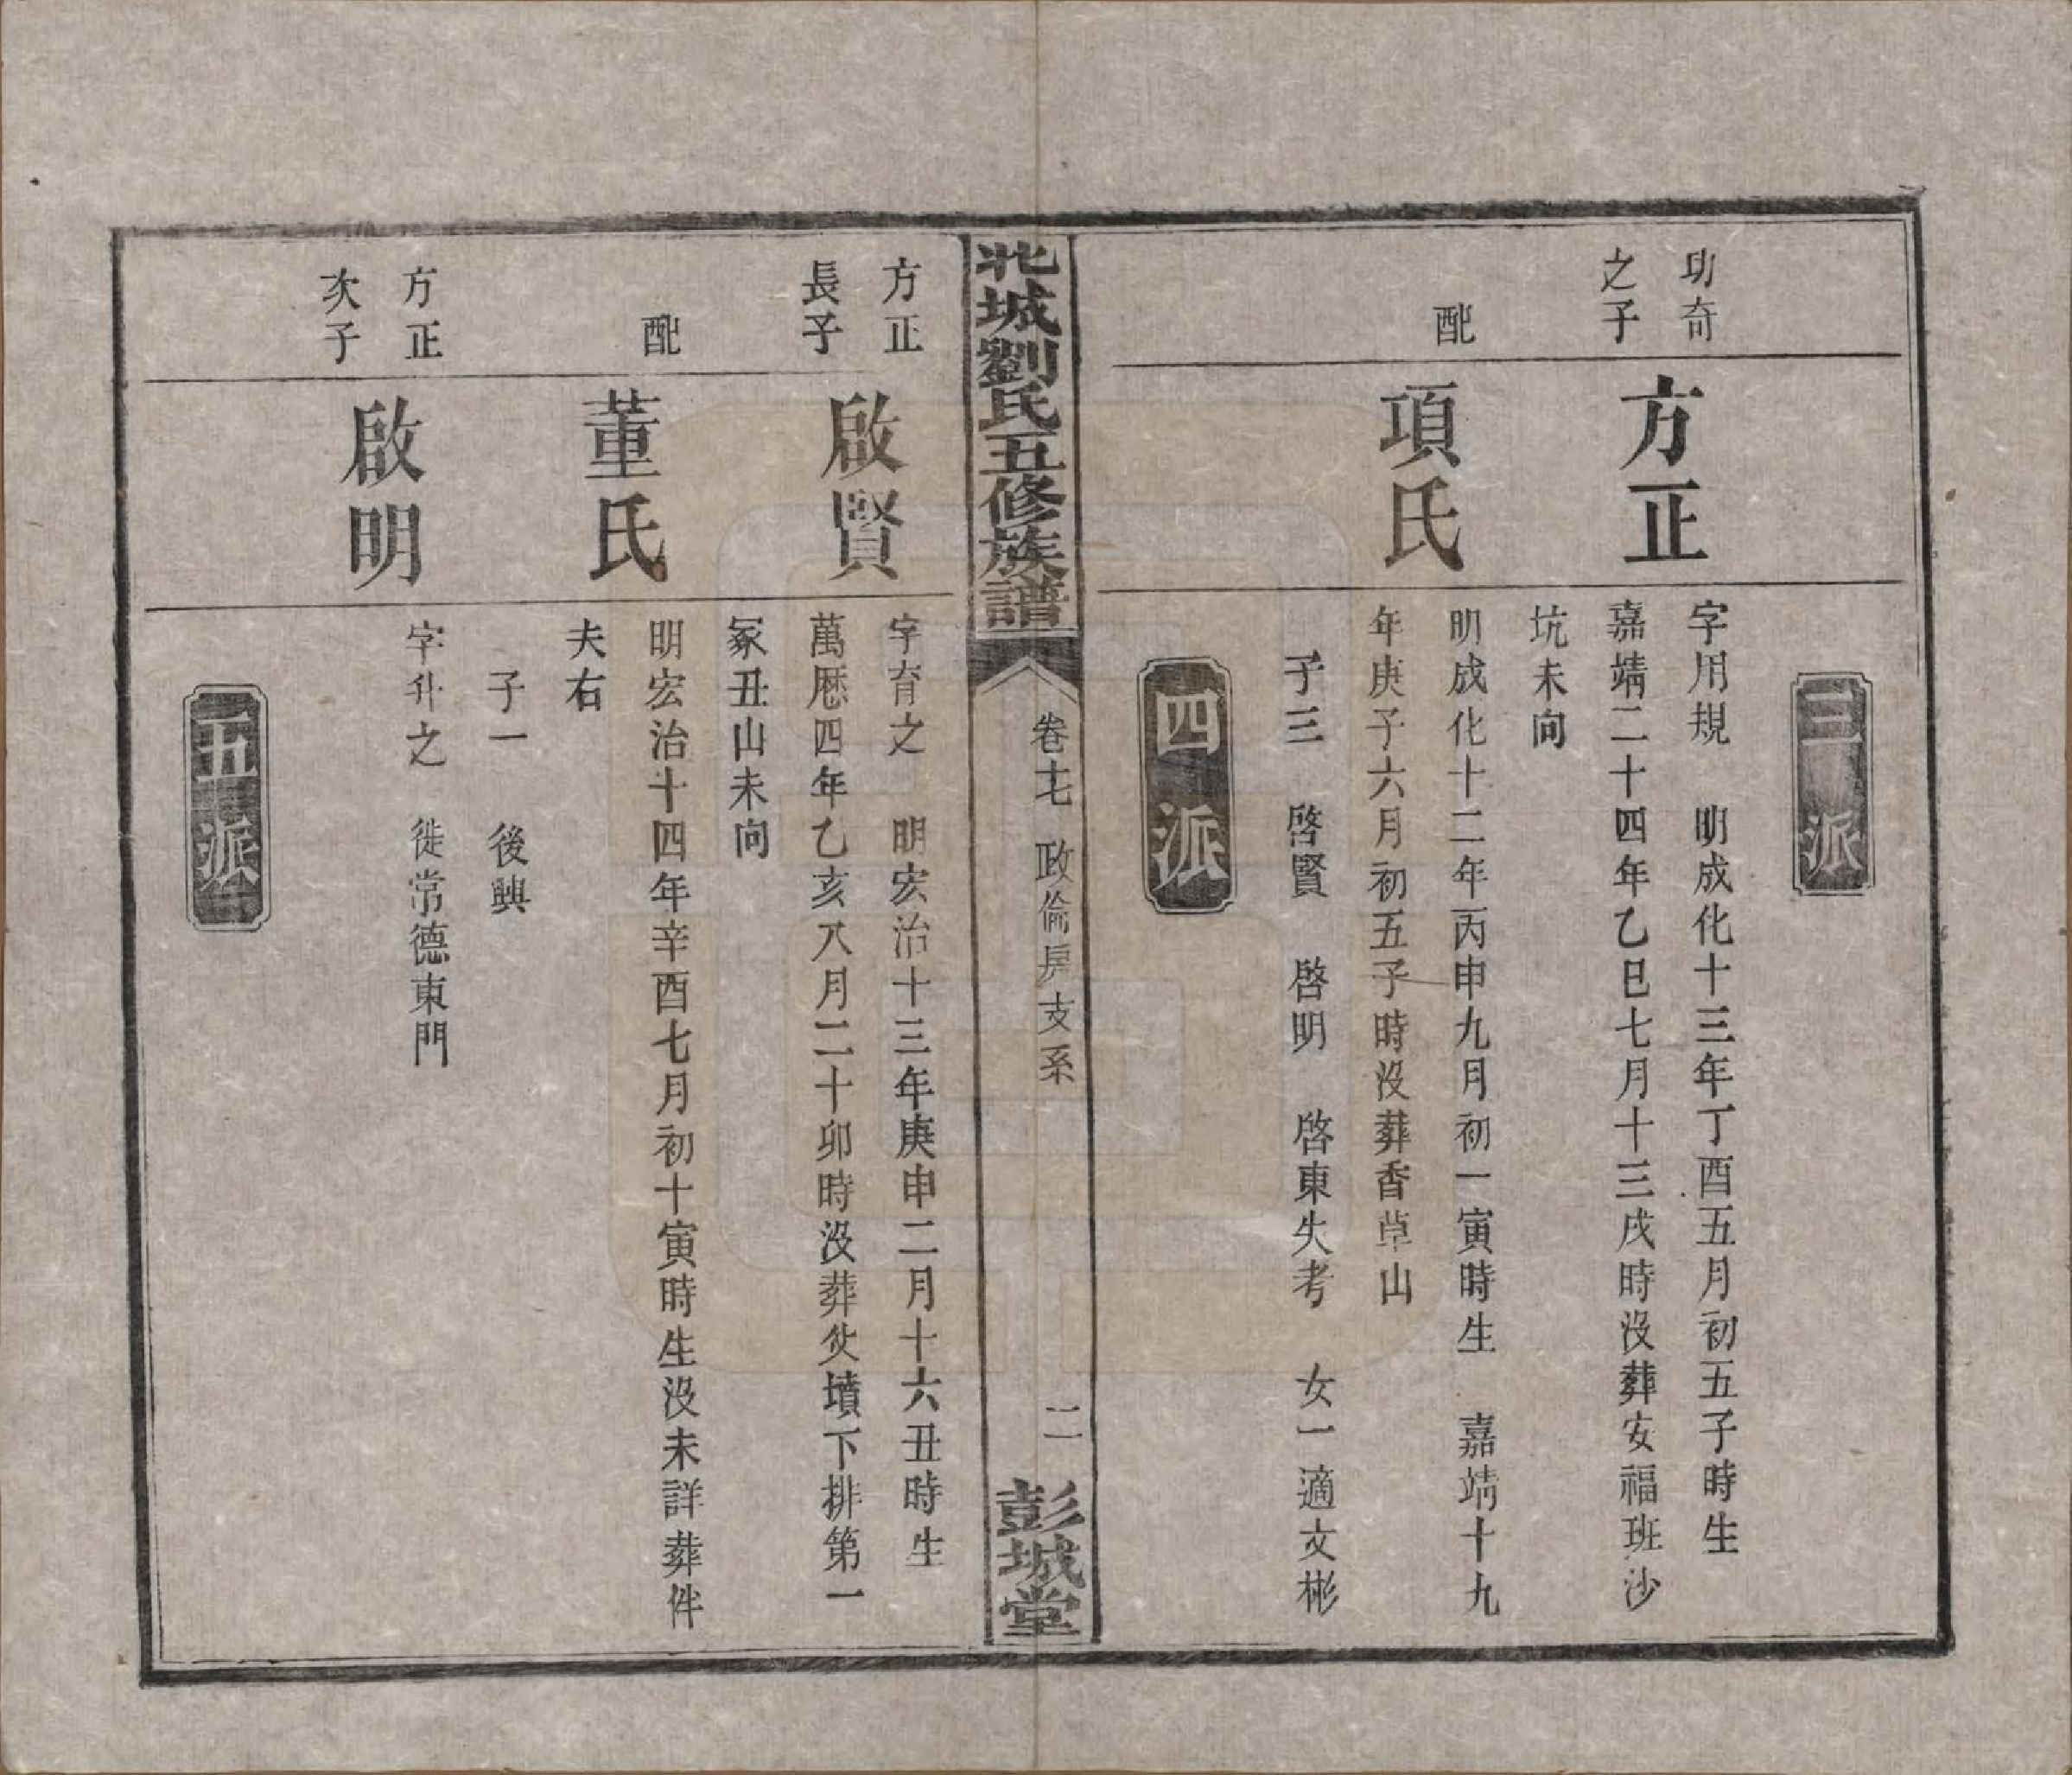 三派
功奇
之子
方正
字用規　明成化十三年丁酉五月初五子時生
嘉靖二十四年乙巳七月十三戌時没葬安福班沙
坑未向
配
項氏
明成化十二年丙申九月初一寅時生　嘉靖十九
年庚子六月初五子時没葬香草山
子三　啓賢　啓明　啓東失考　女一適文彬
四派
北城劉氏五修族譜
卷七　政倫房支系
二
彭城堂
方正
長子
啟賢
字育之　明宏治十三年庚申二月十六丑時生
萬厯四年乙亥八月二十卯時没葬父墳下排第一
冢丑山未向
配
董氏
明宏治十四年辛酉七月初十寅時生没未詳葬件
夫右
子一　後興
方正
次子
啟明
字升之　徙常德東門
五派